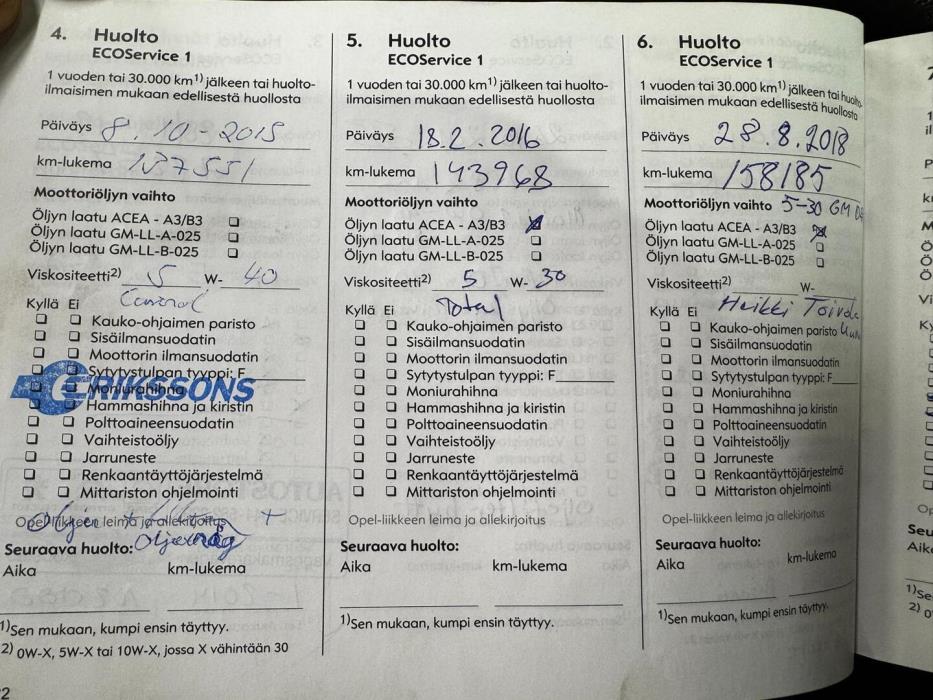 4. Huolto
ECOService 1
1 vuoden tai 30.000 km1) jälkeen tai huolto-
ilmaisimen mukaan edellisestä huollosta
Päiväys 8.10-2015
km-lukema 137551
Moottoriöljyn vaihto
Öljyn laatu ACEA - A3/B3
Öljyn laatu GM-LL-A-025
Öljyn laatu GM-LL-B-025
Viskositeetti2) 5 W- 40
Kyllä Ei
Kauko-ohjaimen paristo
Sisäilmansuodatin
Moottorin ilmansuodatin
Sytytystulpan tyyppi: F
ERIKSSONS
Moniurahihna
Hammashihna ja kiristin
Polttoaineensuodatin
Vaihteistoöljy
Jarruneste
Renkaantäyttöjärjestelmä
Mittariston ohjelmointi
Opel-liikkeen leima ja allekirjoitus
Seuraava huolto:
Aika km-lukema
1)Sen mukaan, kumpi ensin täyttyy.
2) 0W-X, 5W-X tai 10W-X, jossa X vähintään 30
5. Huolto
ECOService 1
1 vuoden tai 30.000 km1) jälkeen tai huolto-
ilmaisimen mukaan edellisestä huollosta
Päiväys 18.2.2016
km-lukema 143968
Moottoriöljyn vaihto
Öljyn laatu ACEA - A3/B3
Öljyn laatu GM-LL-A-025
Öljyn laatu GM-LL-B-025
Viskositeetti2) 5 W- 30
Kyllä Ei Total
Kauko-ohjaimen paristo
Sisäilmansuodatin
Moottorin ilmansuodatin
Sytytystulpan tyyppi: F
Moniurahihna
Hammashihna ja kiristin
Polttoaineensuodatin
Vaihteistoöljy
Jarruneste
Renkaantäyttöjärjestelmä
Mittariston ohjelmointi
Opel-liikkeen leima ja allekirjoitus
Seuraava huolto:
Aika km-lukema
1)Sen mukaan, kumpi ensin täyttyy.
6. Huolto
ECOService 1
1 vuoden tai 30.000 km1) jälkeen tai huolto-
ilmaisimen mukaan edellisestä huollosta
Päiväys 28.8.2018
km-lukema 158185
Moottoriöljyn vaihto 5-30 GM
Öljyn laatu ACEA - A3/B3
Öljyn laatu GM-LL-A-025
Öljyn laatu GM-LL-B-025
Viskositeetti2) W-
Kyllä Ei Heikki Toivola
Kauko-ohjaimen paristo
Sisäilmansuodatin
Moottorin ilmansuodatin
Sytytystulpan tyyppi: F
Moniurahihna
Hammashihna ja kiristin
Polttoaineensuodatin
Vaihteistoöljy
Jarruneste
Renkaantäyttöjärjestelmä
Mittariston ohjelmointi
Opel-liikkeen leima ja allekirjoitus
Seuraava huolto:
Aika km-lukema
1)Sen mukaan, kumpi ensin täyttyy.